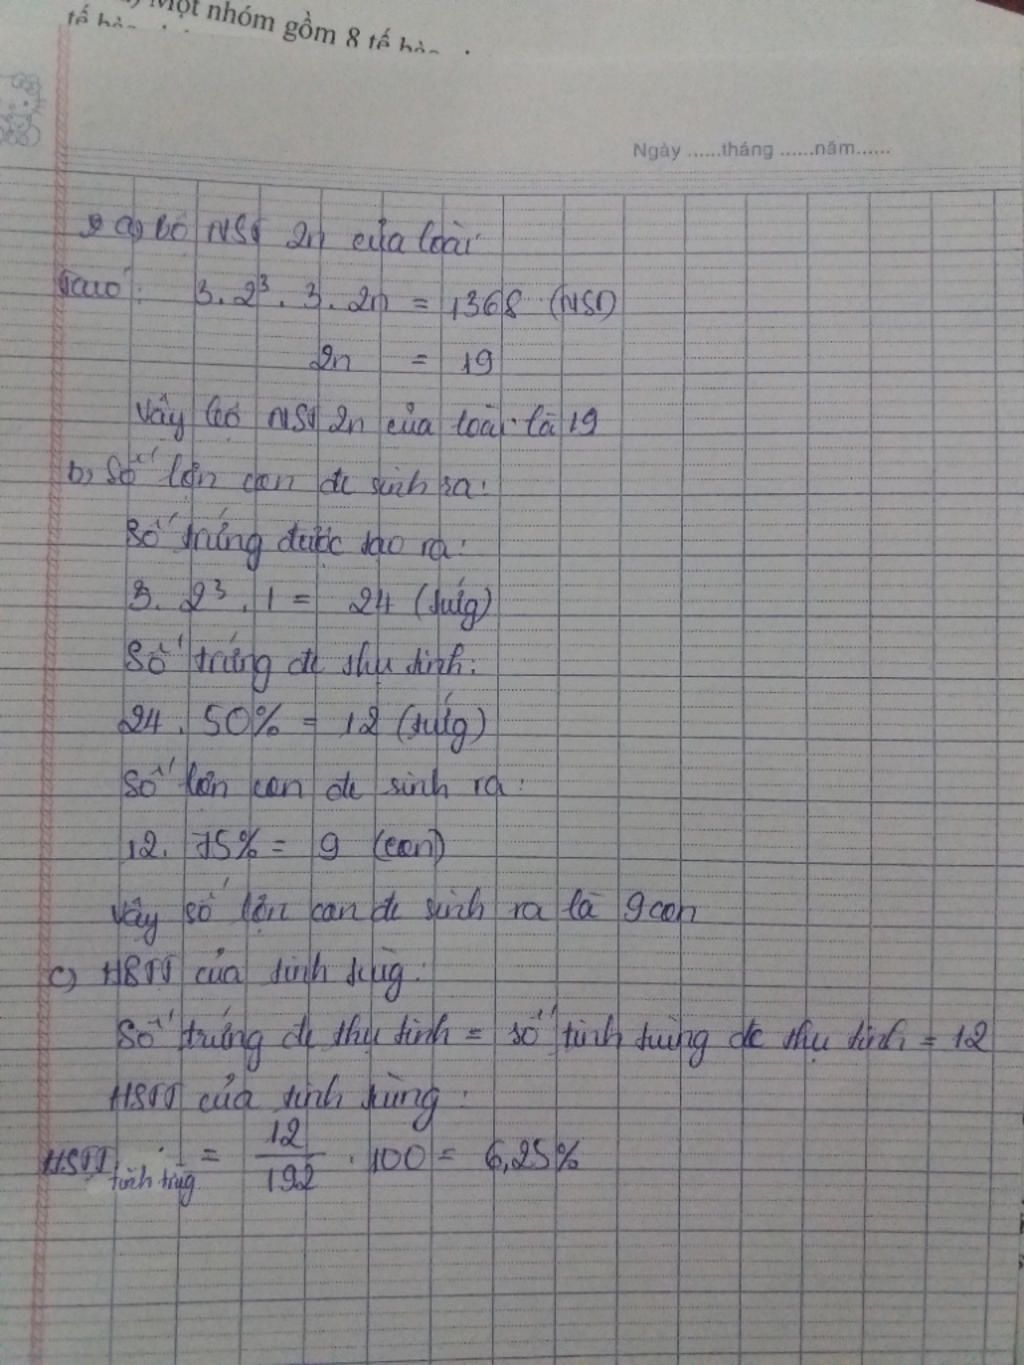 Một nhóm gồm 8 tế bào
Ngày ......tháng ......năm......
2 a) bộ NST 2n của loài
Ta có: 3. 2³. 3. 2n = 1368 (NST)
2n = 19
Vậy bộ NST 2n của loài là 19
b) Số lợn con đc sinh ra:
Số trứng được tạo ra:
3. 2³. 1 = 24 (trứng)
Số trứng đc thụ tinh:
24. 50% = 12 (trứng)
Số lợn con đc sinh ra:
12. 75% = 9 (con)
Vậy số lợn con đc sinh ra là 9 con
c) HSTT của tinh trùng:
Số trứng đc thụ tinh = số tinh trùng đc thụ tinh = 12
HSTT của tinh trùng:
HSTT tinh trùng = 12/192 . 100 = 6,25%